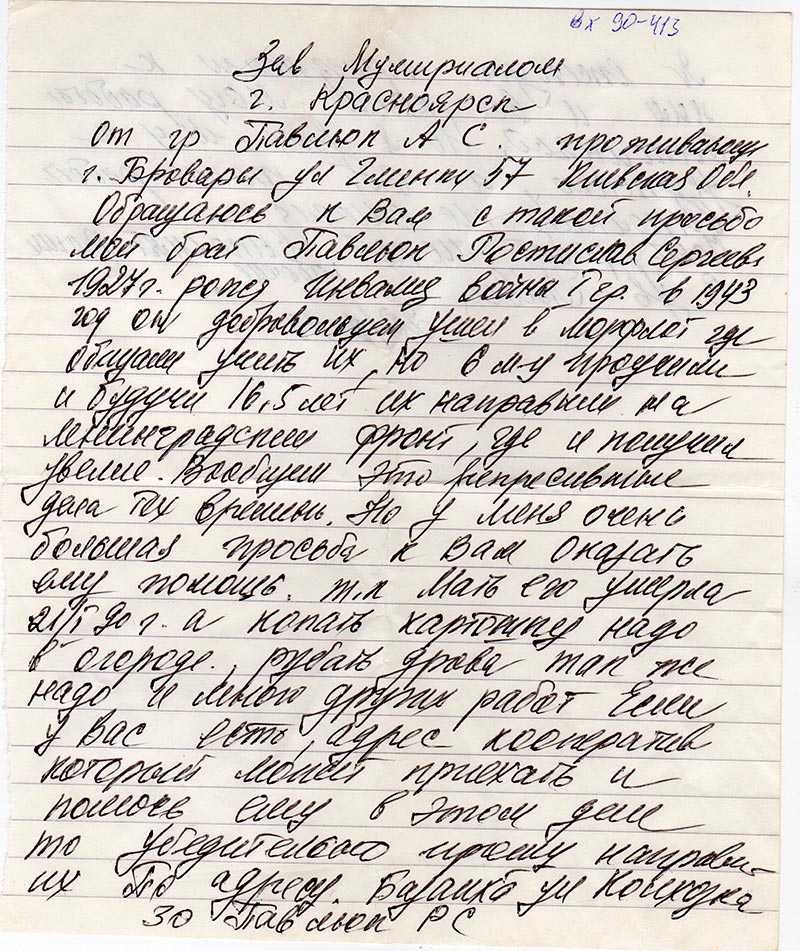 Вх 90-413
Зав Мумириалом
г. Красноярск
от гр Павлюк А С. проживающ
г. Бровары ул Глинки 57 Киевская Обл.
Обращаюсь к Вам с такой просьбо
мой брат Павлюк Ростислав Сергеевич
1927г. рожд Инвалид войны I гр. в 1943
год он добровольцем ушел в морфлот где
обещали учить их, но 6 м-у проучили
и будучи 16,5 лет их направили на
ленинградский фронт, где и получил
увечие. Вообщем это репресивные
дела тех времень. Но у меня очень
большая просьба к Вам оказать
ему помощь. т.к Мать его умерла
21/I 90 г. а копать картошку надо
в огороде, рубать дрова так же
надо и много других работ Если
у Вас есть адрес кооператив
который может приехать и
помочь ему в этом деле
то убедительно прошу направи-
их По адресу. Базаиха ул Колхозная
30 Павлюк РС